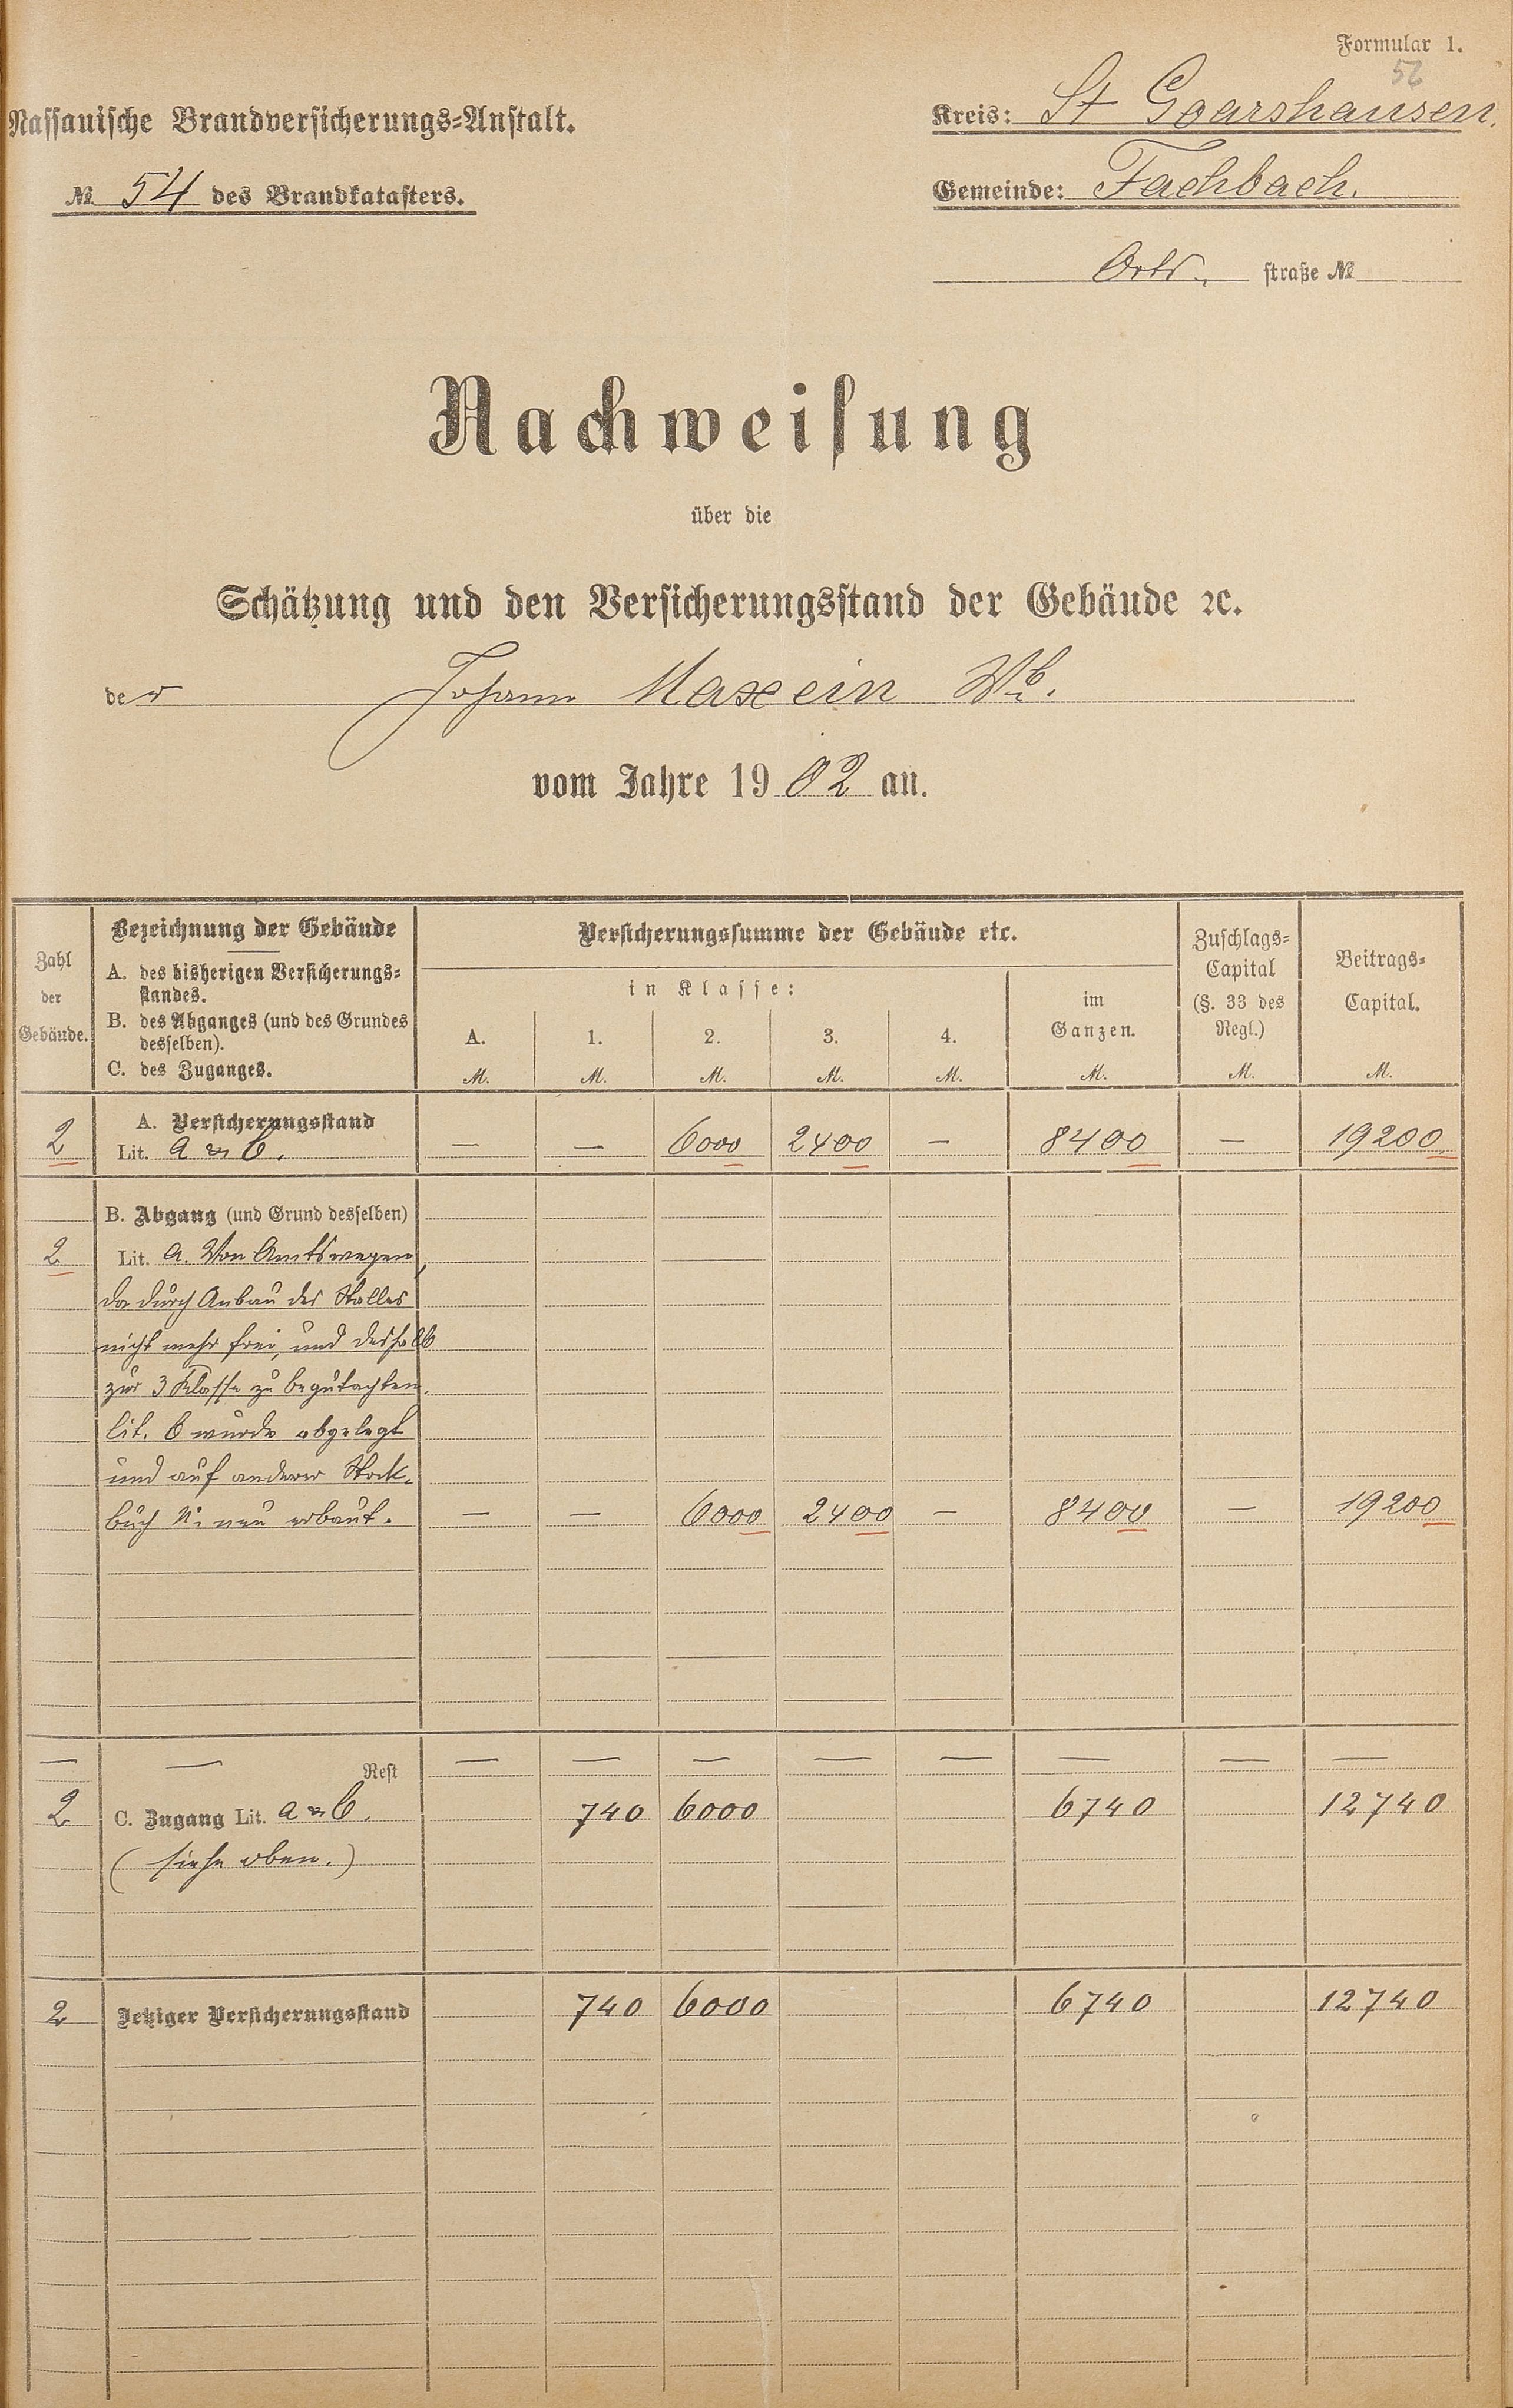 Formular 1.
56
Nassauische Brandversicherungs-Anstalt.
Kreis: St Goarshausen.
№ 54 des Brandkatasters.
Gemeinde: Fachbach.
Orts. straße №
Nachweisung
über die
Schätzung und den Versicherungsstand der Gebäude ꝛc.
der Johann Maxein Wb.
vom Jahre 1902 an.
Zahl der Gebäude.
Bezeichnung der Gebäude
A. des bisherigen Versicherungs-
standes.
B. des Abganges (und des Grundes
desselben).
C. des Zuganges.
Versicherungssumme der Gebäude etc.
in Klasse:
A. 1. 2. 3. 4.
M. M. M. M. M.
im
Ganzen.
M.
Zuschlags-
Capital
(§. 33 des
Regl.)
M.
Beitrags-
Capital.
M.
A. Versicherungsstand
2 Lit. a u b. — — 6000 2400 — 8400 — 19200
B. Abgang (und Grund desselben)
2 Lit. a. Von Amtswegen,
da durch Anbau des Stalles
nicht mehr frei, und deshalb
zur 3 Klasse zu begutachten.
lit. b wurde abgelegt
und auf anderer Stock-
buch № neu erbaut. — — 6000 2400 — 8400 — 19200
— — Rest — — — — — — — —
2 C. Zugang Lit. a u b. 740 6000 6740 12740
(siehe oben.)
2 Jetziger Versicherungsstand 740 6000 6740 12740